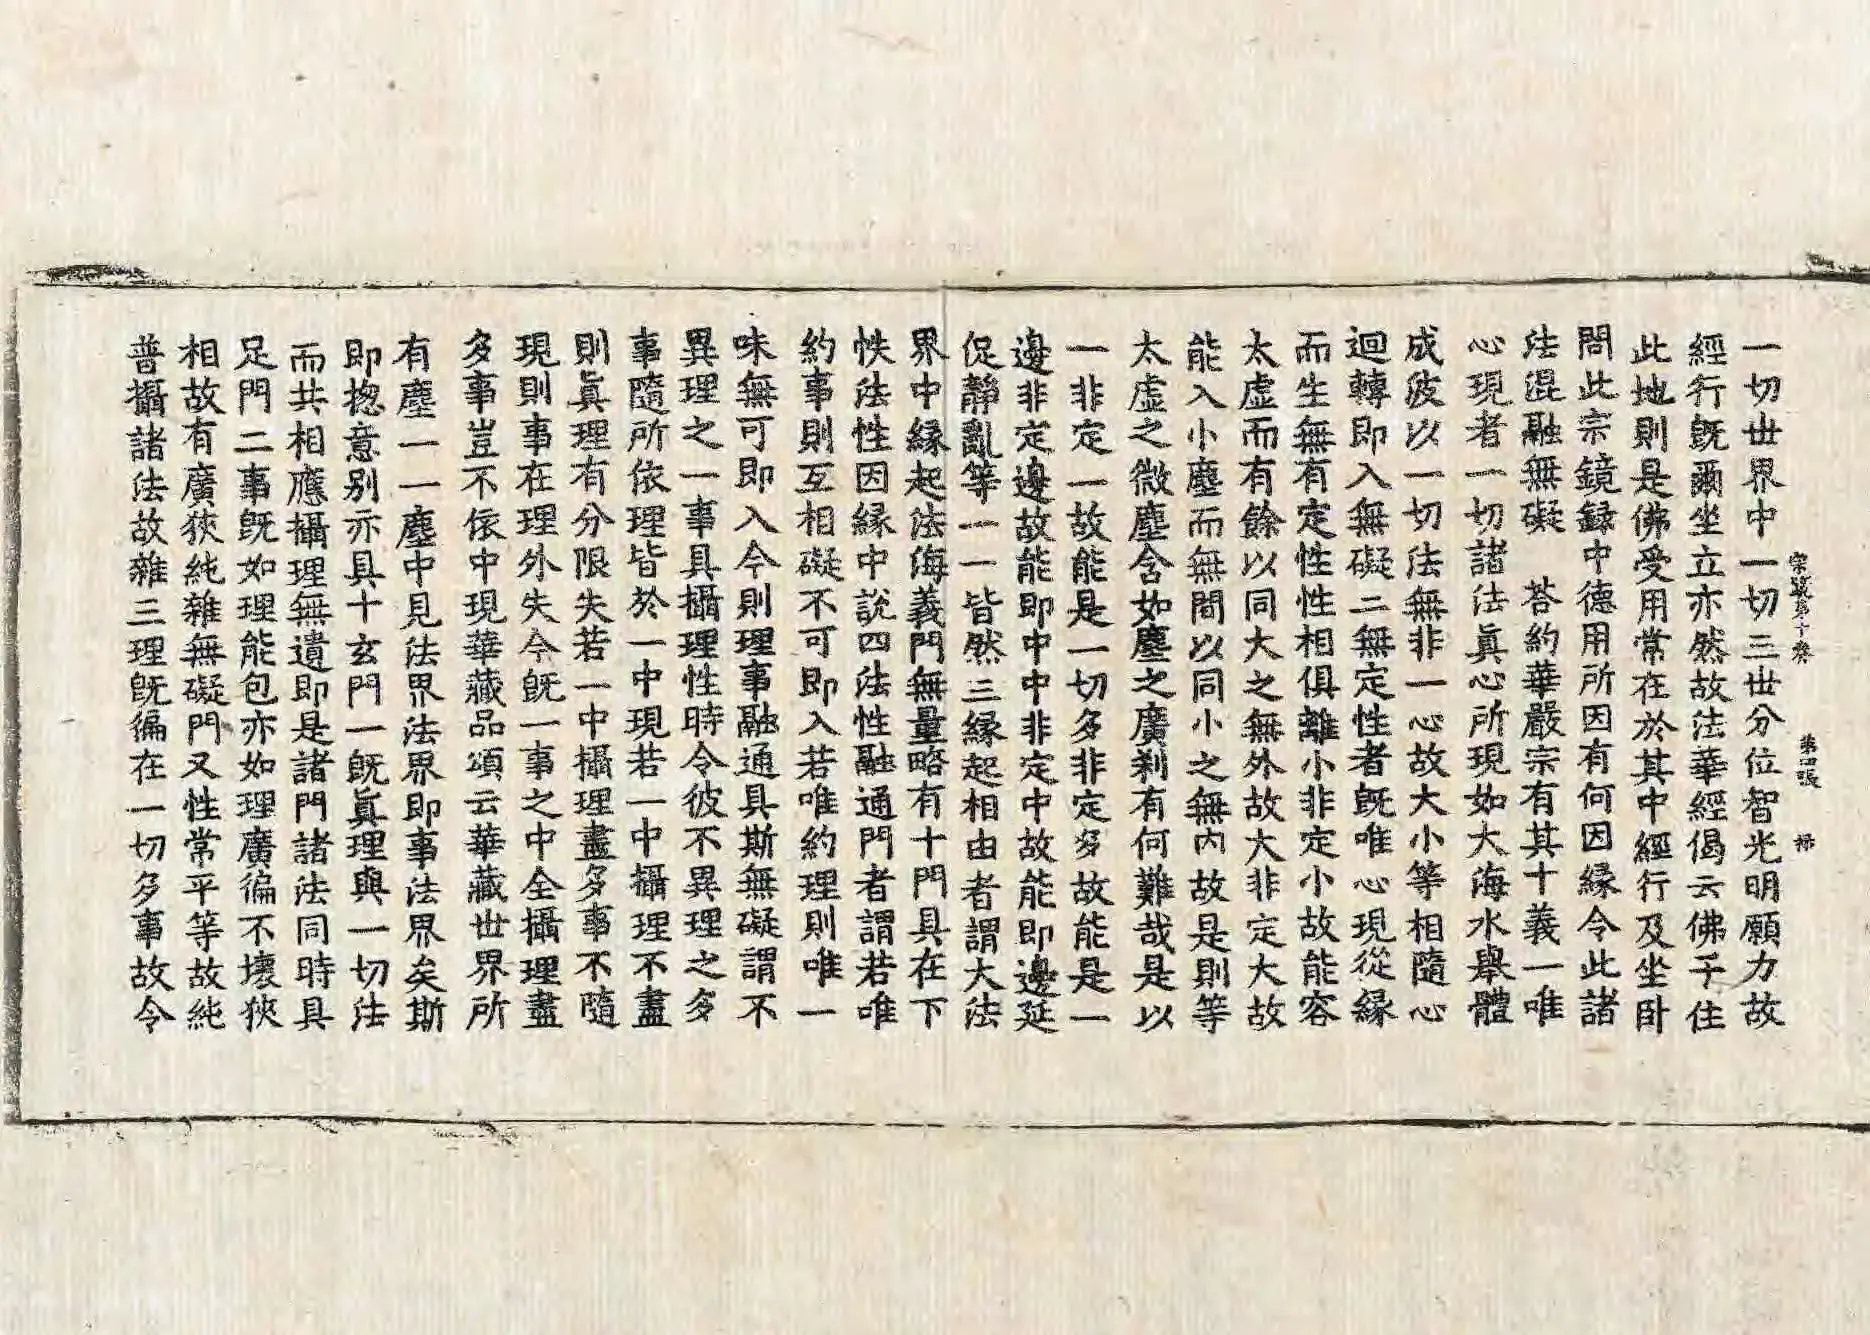 宗鏡第十卷 第四張 柰
一切世界中一切三世分位智光明願力故
經行旣爾坐立亦然故法華經偈云佛子住
此地則是佛受用常在於其中經行及坐臥
問此宗鏡録中德用所因有何因緣令此諸
法混融無礙 荅約華嚴宗有其十義一唯
心現者一切諸法眞心所現如大海水舉體
成波以一切法無非一心故大小等相隨心
迴轉即入無礙二無定性者旣唯心現從緣
而生無有定性性相俱離小非定小故能容
太虛而有餘以同大之無外故大非定大故
能入小塵而無間以同小之無內故是則等
太虛之微塵含如塵之廣刹有何難哉是以
一非定一故能是一切多非定多故能是一
邊非定邊故能即中中非定中故能即邊延
促靜亂等一一皆然三緣起相由者謂大法
界中緣起法海義門無量略有十門具在下
帙法性因緣中說四法性融通門者謂若唯
約事則互相礙不可即入若唯約理則唯一
味無可即入今則理事融通具斯無礙謂不
異理之一事具攝理性時令彼不異理之多
事隨所依理皆於一中現若一中攝理不盡
則眞理有分限失若一中攝理盡多事不隨
現則事在理外失今旣一事之中全攝理盡
多事豈不依中現華藏品頌云華藏世界所
有塵一一塵中見法界法界即事法界矣斯
即揔意別亦具十玄門一旣眞理與一切法
而共相應攝理無遺即是諸門諸法同時具
足門二事旣如理能包亦如理廣徧不壞狹
相故有廣狹純雜無礙門又性常平等故純
普攝諸法故雜三理旣徧在一切多事故令